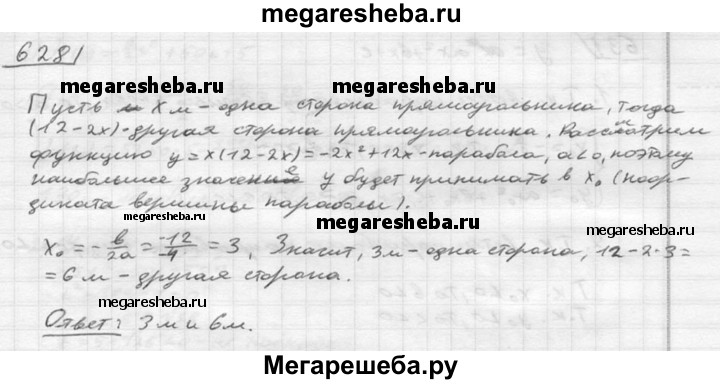 megaresheba.ru
628)
megaresheba.ru megaresheba.ru
Пусть x м – одна сторона прямоугольника, тогда
(12-2x) - другая сторона прямоугольника. Рассмотрим
функцию y = x(12-2x) = -2x²+12x - парабола, a<0, поэтому
наибольшее значение y будет принимать в x₀ (коор-
дината вершины параболы).
megaresheba.ru megaresheba.ru
x₀ = -b/2a = -12/-4 = 3, Значит, 3м – одна сторона, 12-2·3=
= 6 м - другая сторона.
megaresheba.ru
Ответ: 3 м и 6 м.
megaresheba.ru
Мегарешеба.ру